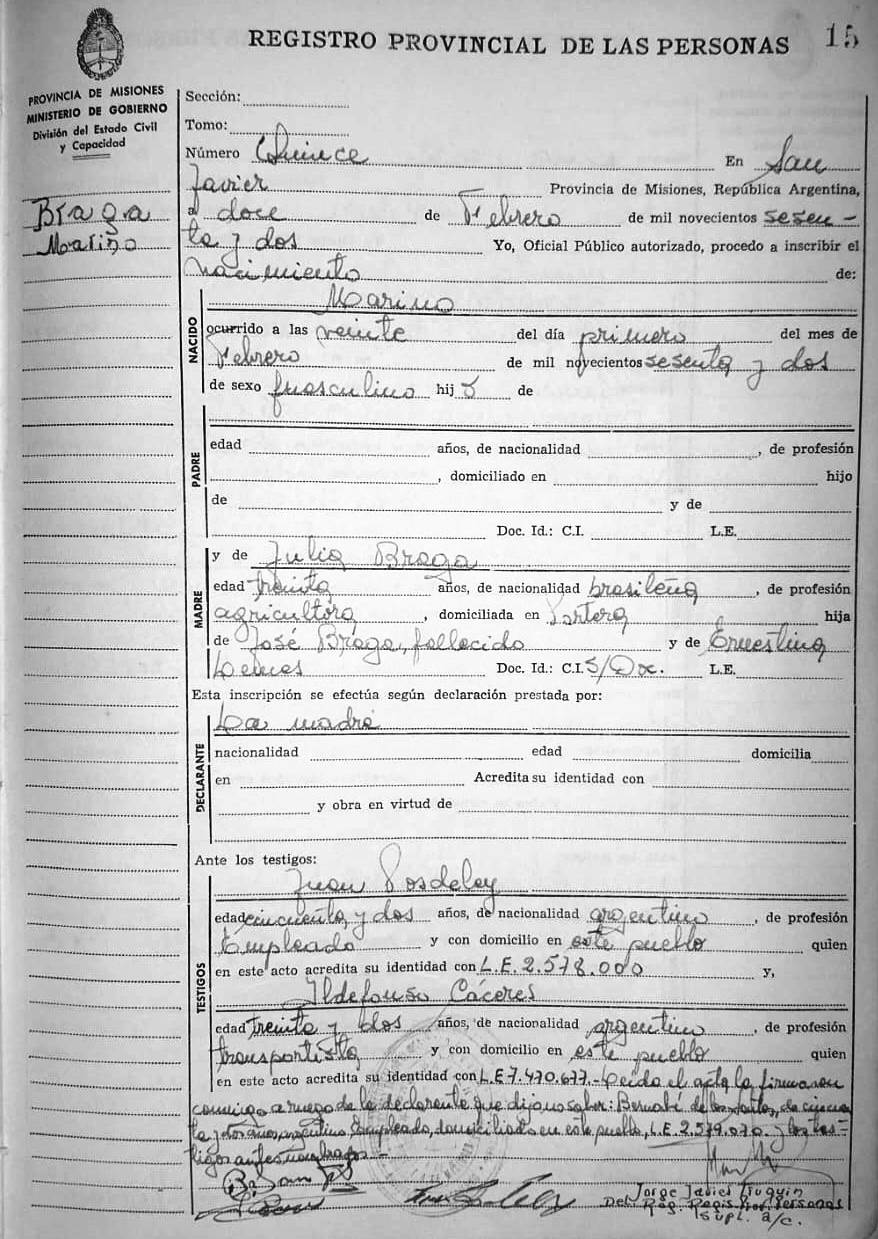 REGISTRO PROVINCIAL DE LAS PERSONAS 15
PROVINCIA DE MISIONES
MINISTERIO DE GOBIERNO
División del Estado Civil
y Capacidad
Braga
Mariño
Sección:
Tomo:
Número Quince En San
Javier Provincia de Misiones, República Argentina,
a doce de Febrero de mil novecientos sesen-
ta y dos Yo, Oficial Público autorizado, procedo a inscribir el
nacimiento de:
NACIDO
Marino
ocurrido a las veinte del día primero del mes de
Febrero de mil novecientos sesenta y dos
de sexo masculino hijo de
PADRE
edad años, de nacionalidad , de profesión
, domiciliado en hijo
de y de
Doc. Id.: C.I. L.E.
MADRE
y de Julia Braga
edad treinta años, de nacionalidad brasileña , de profesión
agricultora , domiciliada en Portera hija
de José Braga, fallecido y de Ernestina
Lemes Doc. Id.: C.I. S/Doc. L.E.
Esta inscripción se efectúa según declaración prestada por:
DECLARANTE
La madre
nacionalidad edad domicilia
en Acredita su identidad con
y obra en virtud de
Ante los testigos:
TESTIGOS
Juan Posdeley
edad cincuenta y dos años, de nacionalidad argentino , de profesión
Empleado y con domicilio en este pueblo quien
en este acto acredita su identidad con L.E. 2.578.000 y,
Ildefonso Cáceres
edad treinta y dos años, de nacionalidad argentino , de profesión
transportista y con domicilio en este pueblo quien
en este acto acredita su identidad con L.E 7.470.677.- Leída el acta la firmaron
conmigo a ruego de la declarante que dijo no saber: Bernabé de los Santos, de cincuen
ta y dos años, argentino, Empleado, domiciliado en este pueblo, L.E. 2.579.070. y los tes-
tigos antes nombrados.-
Jorge Javier Truquin
Del. Reg. Regis. Prov. Personas
Supl. a/c.